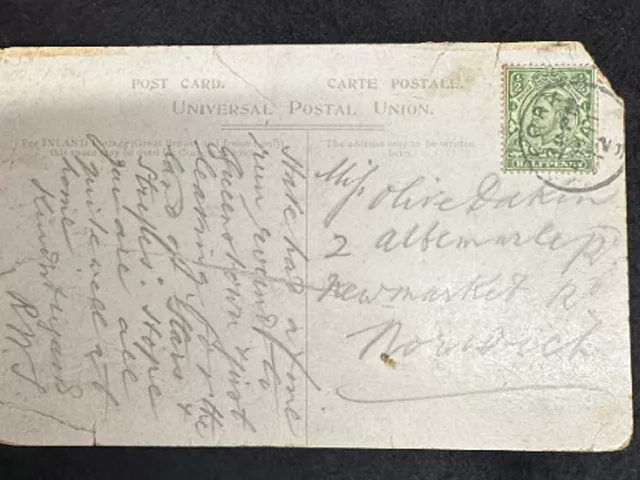 POST CARD.
CARTE POSTALE.
UNIVERSAL POSTAL UNION.
For INLAND Postage (Great Britain and Ireland only)
this space may be used for
The address only to be written
here.
HALFPENNY
Have had a fine
run round to
Queenstown & just
leaving for the
Land of Stars &
Stripes. Hope
you are all
quite well at
home
Kind regards
R.W.S.
Miss Olive Dakin
2 Albemarle
Newmarket Rd
Norwich